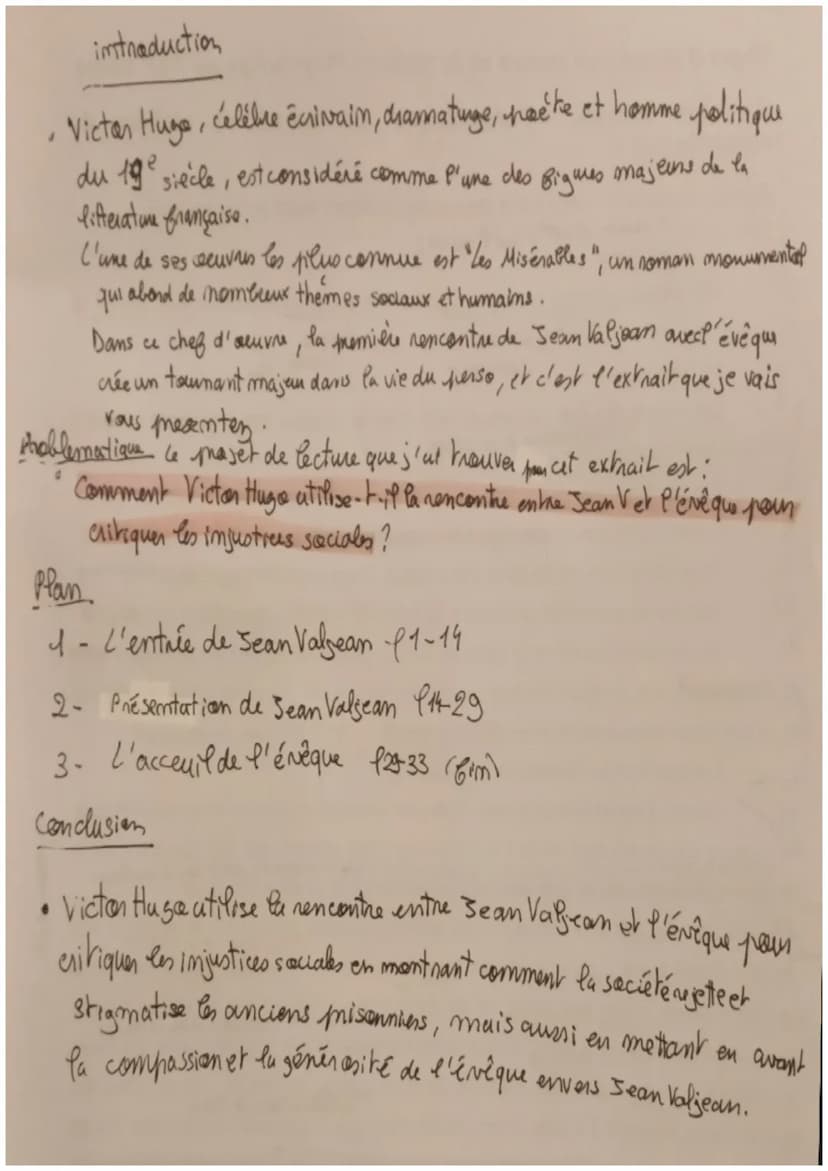 introduction
. Victor Hugo, célèbre écrivain, dramaturge, poète et homme politique
du 19e siècle, est considéré comme l'une des figures majeurs de la
litterature française.
L'une de ses œuvres les plus connue est "Les Misérables", un roman monumental
qui abord de nombreux thèmes sociaux et humains.
Dans ce chef d'œuvre, la première rencontre de Jean Valjean avec l'évêque
crée un tournant majeur dans la vie du perso, et c'est l'extrait que je vais
vous presenter.
Problematique Le projet de lecture que j'ai trouver pour cet extrait est :
" Comment Victor Hugo utilise-t-il la rencontre entre Jean V et l'évêque pour
critiquer les injustices sociales ?
Plan
1 - L'entrée de Jean Valjean l1-14
2- Présentation de Jean Valjean l14-29
3- L'acceuil de l'évêque l29-33 (fin)
Conclusion
• Victor Hugo utilise la rencontre entre Jean Valjean et l'évêque pour
critiquer les injustices sociales en montrant comment la société rejette et
stigmatise les anciens prisonniers, mais aussi en mettant en avant
la compassion et la générosité de l'évêque envers Jean Valjean.